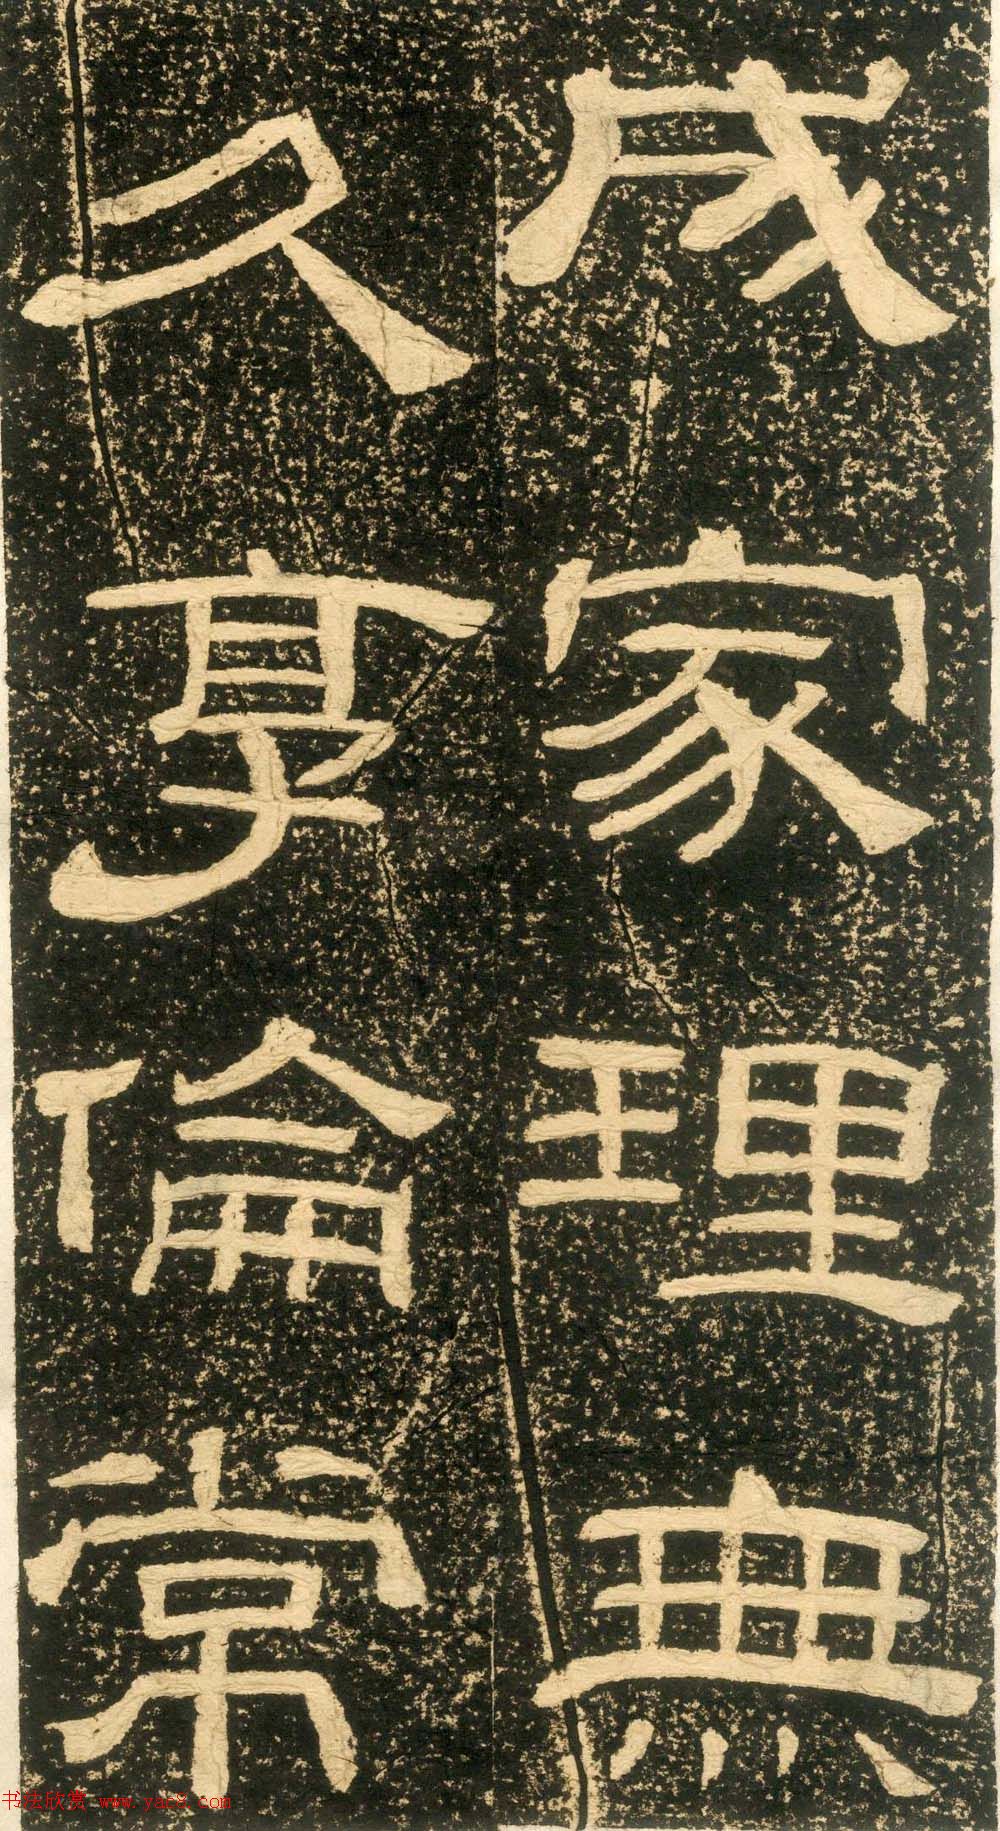 成家理無
久享倫常
书法欣赏 www.yac8.com